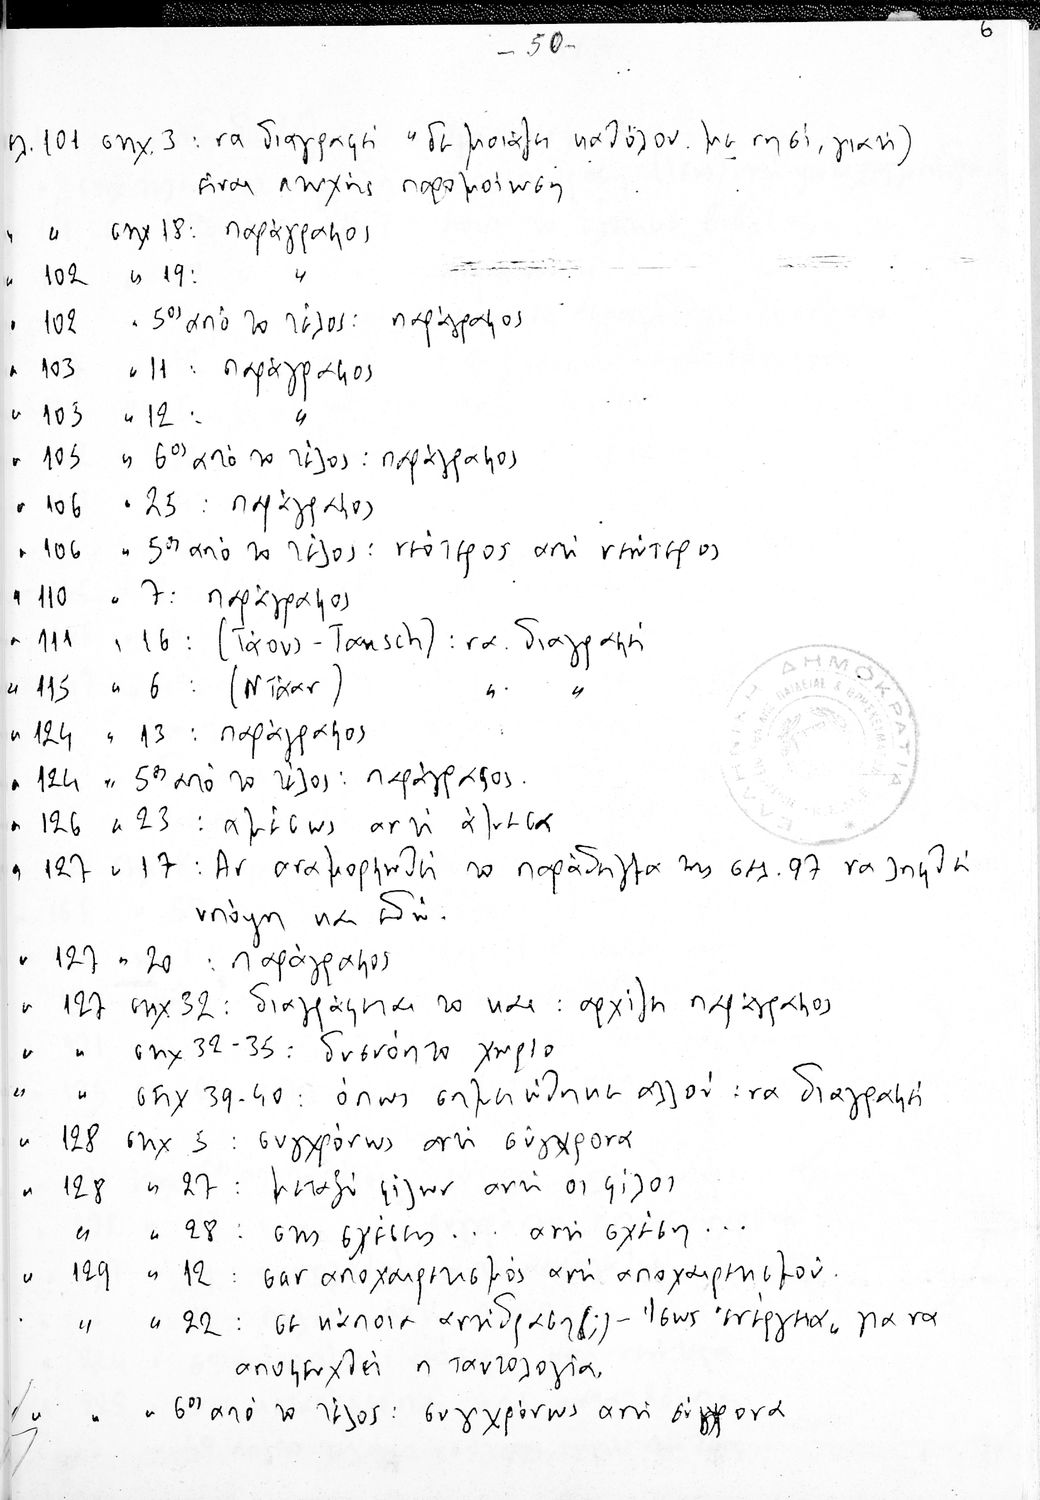 6
- 50 -
λ. 101 στιχ. 3 : να διαγραφεί "δε μοιάζει καθόλου με νησί, γιατί)
είναι πτωχής παρομοίωση
" " στιχ 18 : παράγραφος
" 102 " 19 : "
" 102 " 5ος από το τέλος : παράγραφος
" 103 " 11 : παράγραφος
" 103 " 12 : "
" 105 " 6ος από το τέλος : παράγραφος
" 106 " 25 : παράγραφος
" 106 " 5ος από το τέλος : νεότερος αντί νεώτερος
" 110 " 7 : παράγραφος
" 111 " 16 : (Τάους - Tausch) : να διαγραφεί
" 115 " 6 : (Ντάαν) " "
" 124 " 13 : παράγραφος
" 124 " 5ος από το τέλος : παράγραφος.
" 126 " 23 : αμέσως αντί άμεσα
" 127 " 17 : Αν αναμορφωθεί το παράδειγμα της σελ. 97 να ληφθεί
υπόψη και εδώ.
" 127 " 20 : παράγραφος
" 127 στιχ. 32 : διαγράφεται το και : αρχίζει παράγραφος
" " στιχ 32-35 : δυσνόητο χωρίο
" " στιχ 39-40 : όπως σημειώθηκε αλλού : να διαγραφεί
" 128 στιχ 5 : συγχρόνως αντί σύγχρονα
" 128 " 27 : μεταξύ φίλων αντί οι φίλοι
" " 28 : στις σχέσεις ... αντί σχέση ...
" 129 " 12 : σαν αποχαιρετισμός αντί αποχαιρετισμού.
" " 22 : σε κάποια αντίδραση(;) - Ίσως "ενέργεια" για να
αποφευχθεί η ταυτολογία.
" " " 6ος από το τέλος : συγχρόνως αντί σύγχρονα
ΕΛΛΗΝΙΚΗ ΔΗΜΟΚΡΑΤΙΑ